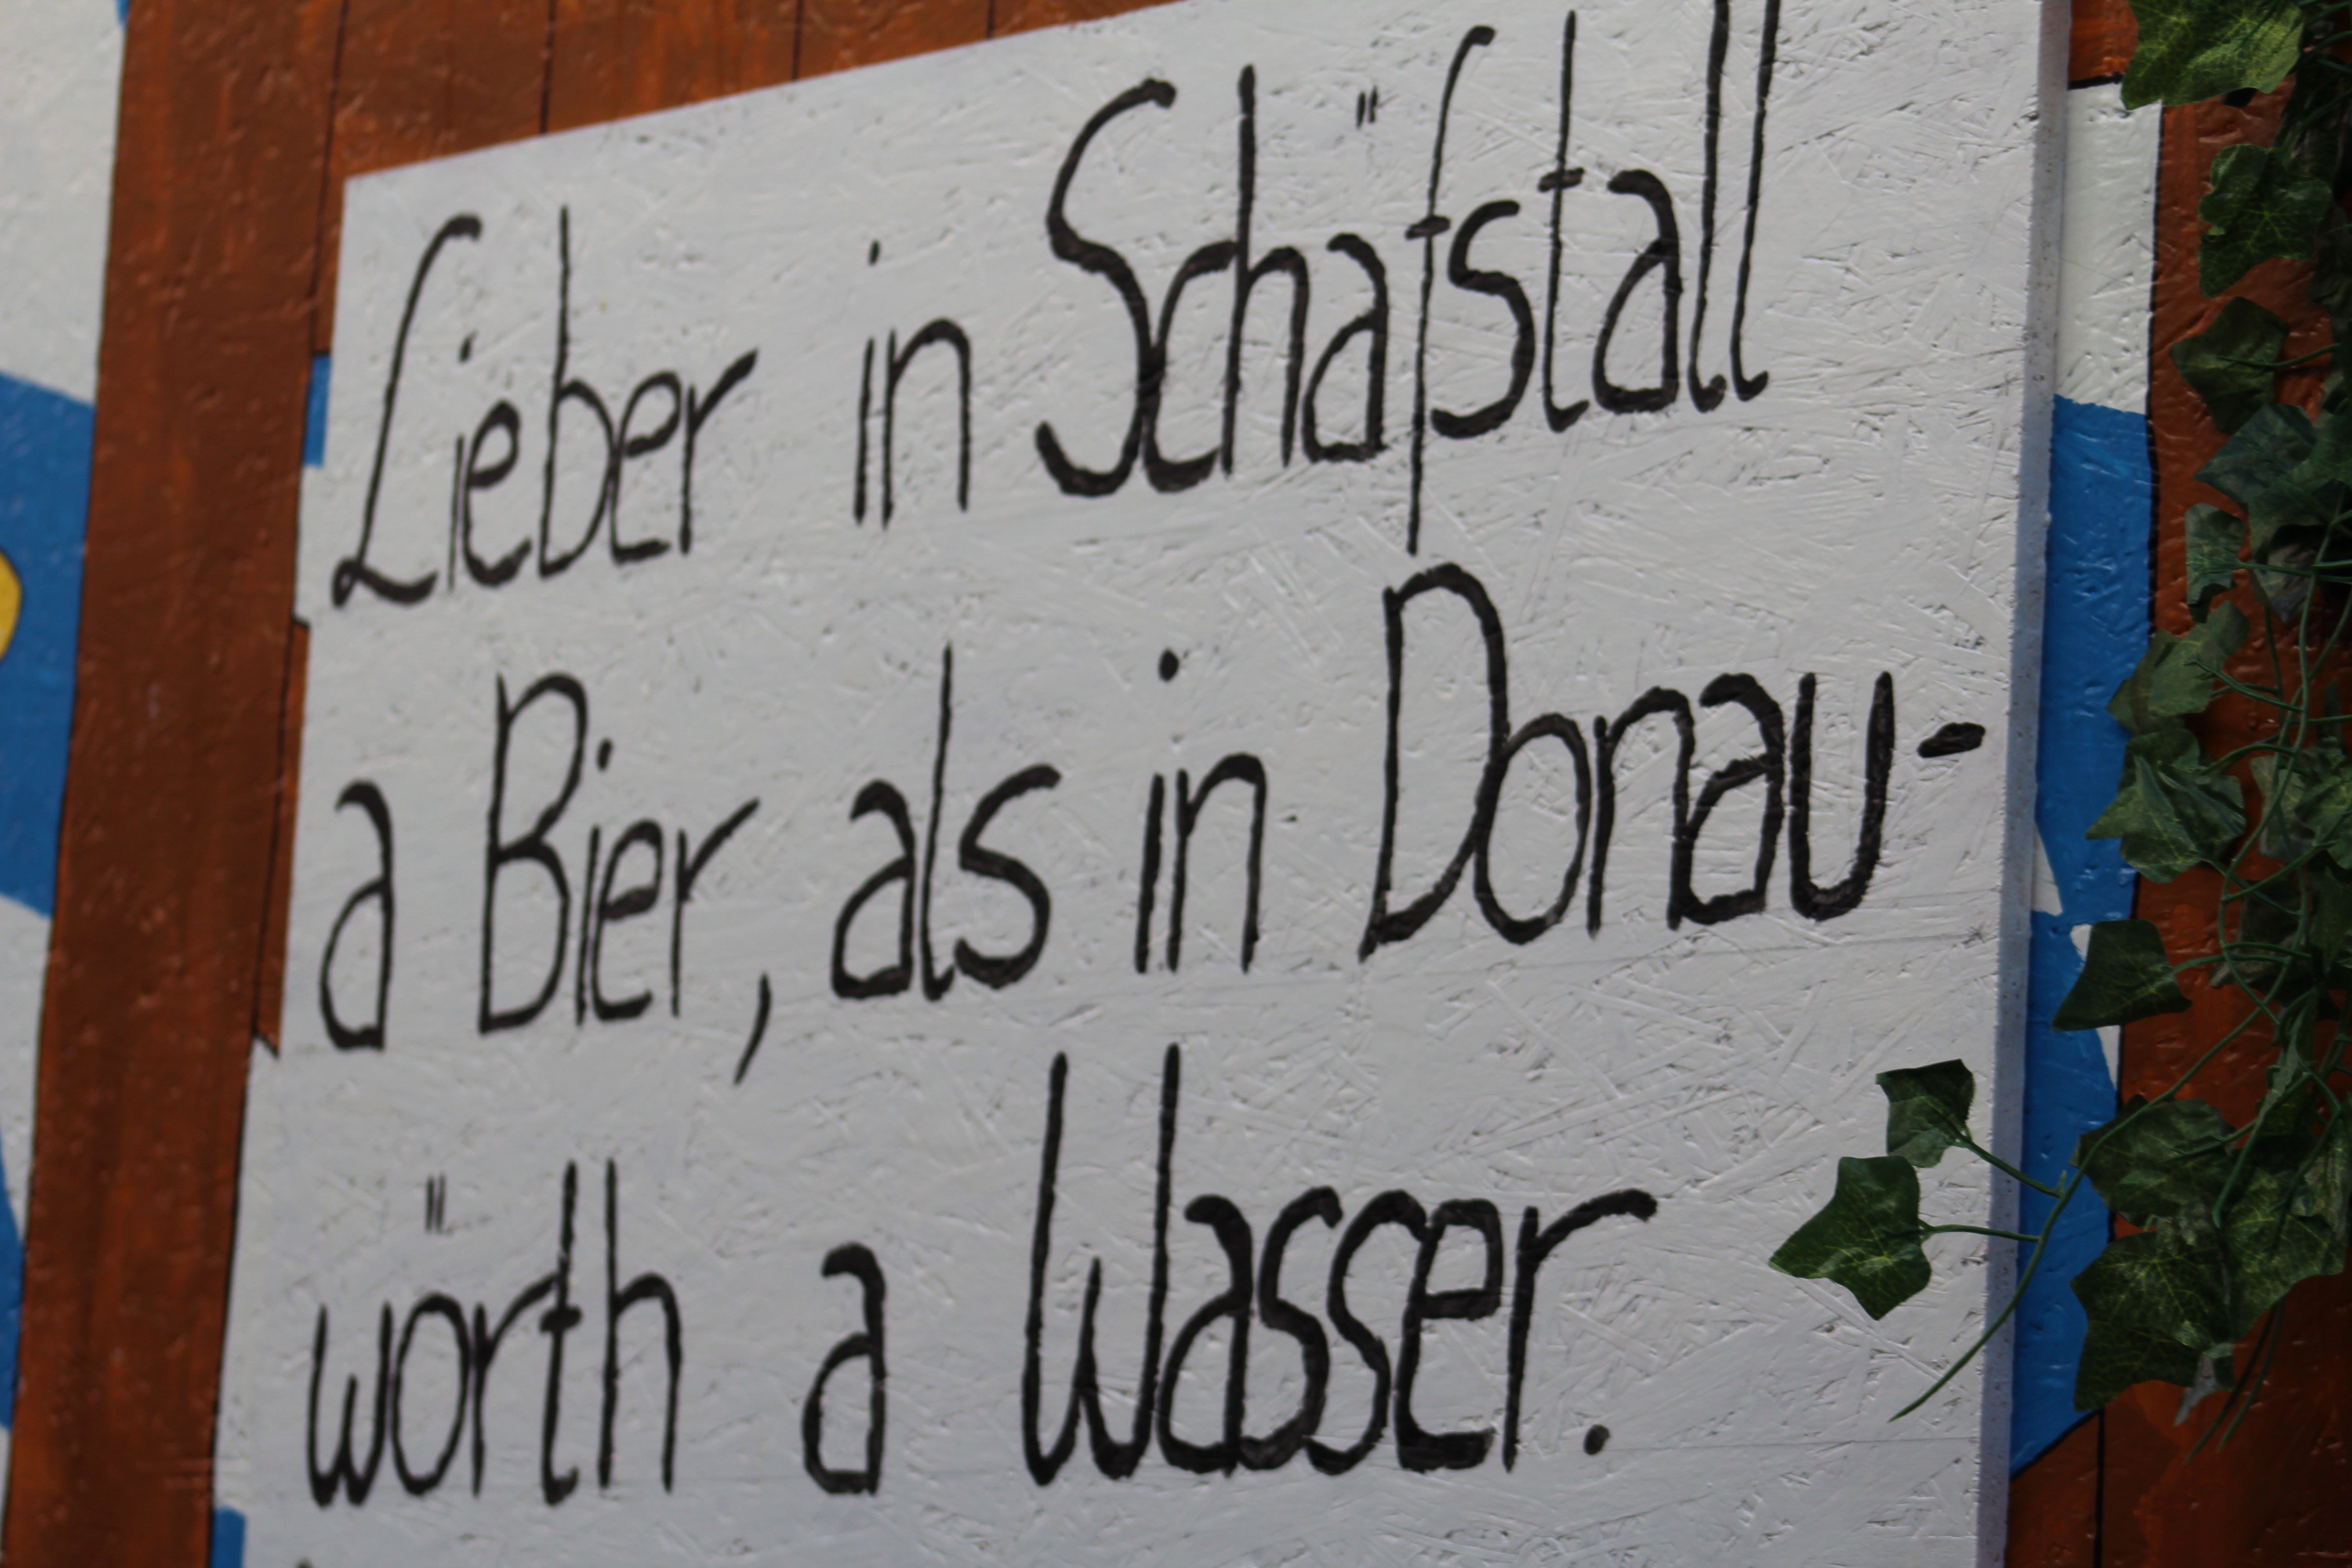 Lieber in Schäfstall
a Bier, als in Donau-
wörth a Wasser.